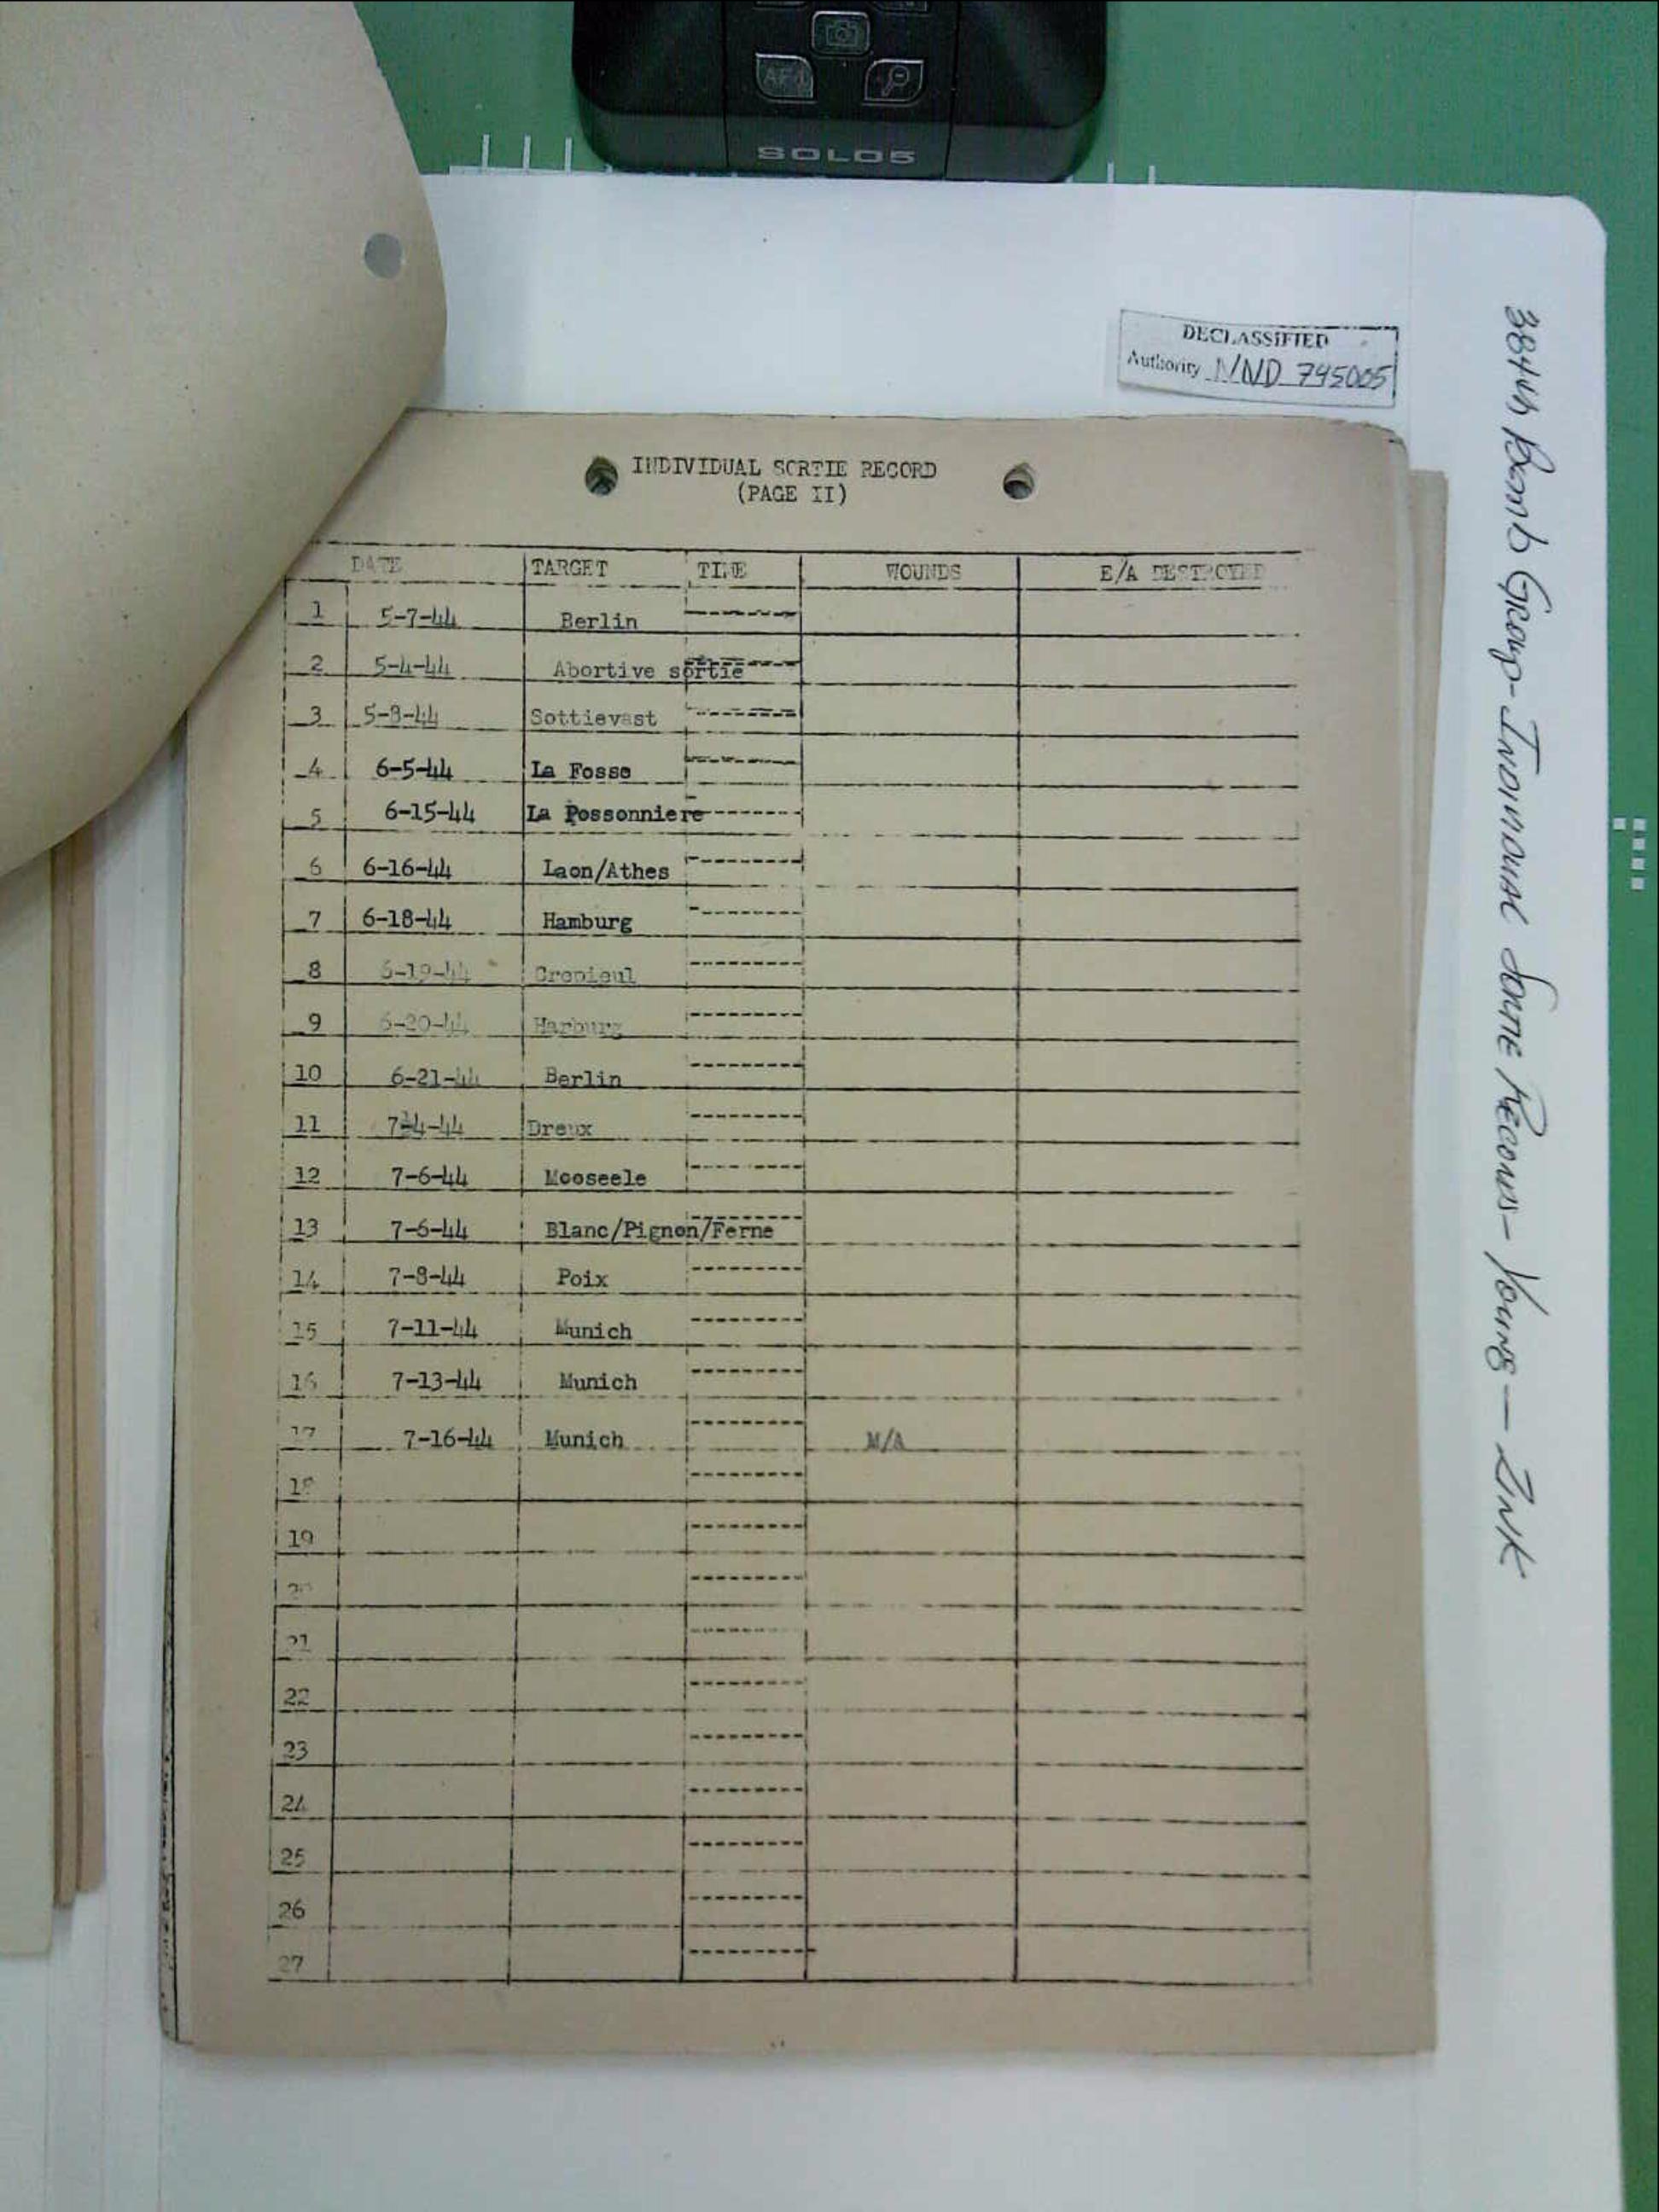 AF
SOLO5
DECLASSIFIED
Authority NND 745005
384th Bomb Group - Individual Sortie Records - Young - Zink
INDIVIDUAL SORTIE RECORD
(PAGE II)
DATE TARGET TIME WOUNDS E/A DESTROYED
1 5-7-44 Berlin
2 5-4-44 Abortive sortie
3 5-8-44 Sottievast
4 6-5-44 La Fosse
5 6-15-44 La Possonniere
6 6-16-44 Laon/Athes
7 6-18-44 Hamburg
8 6-19-44 Crepieul
9 6-20-44 Harburg
10 6-21-44 Berlin
11 7-4-44 Dreux
12 7-6-44 Mooseele
13 7-6-44 Blanc/Pignon/Ferne
14 7-8-44 Poix
15 7-11-44 Munich
16 7-13-44 Munich
17 7-16-44 Munich M/A
18
19
20
21
22
23
24
25
26
27